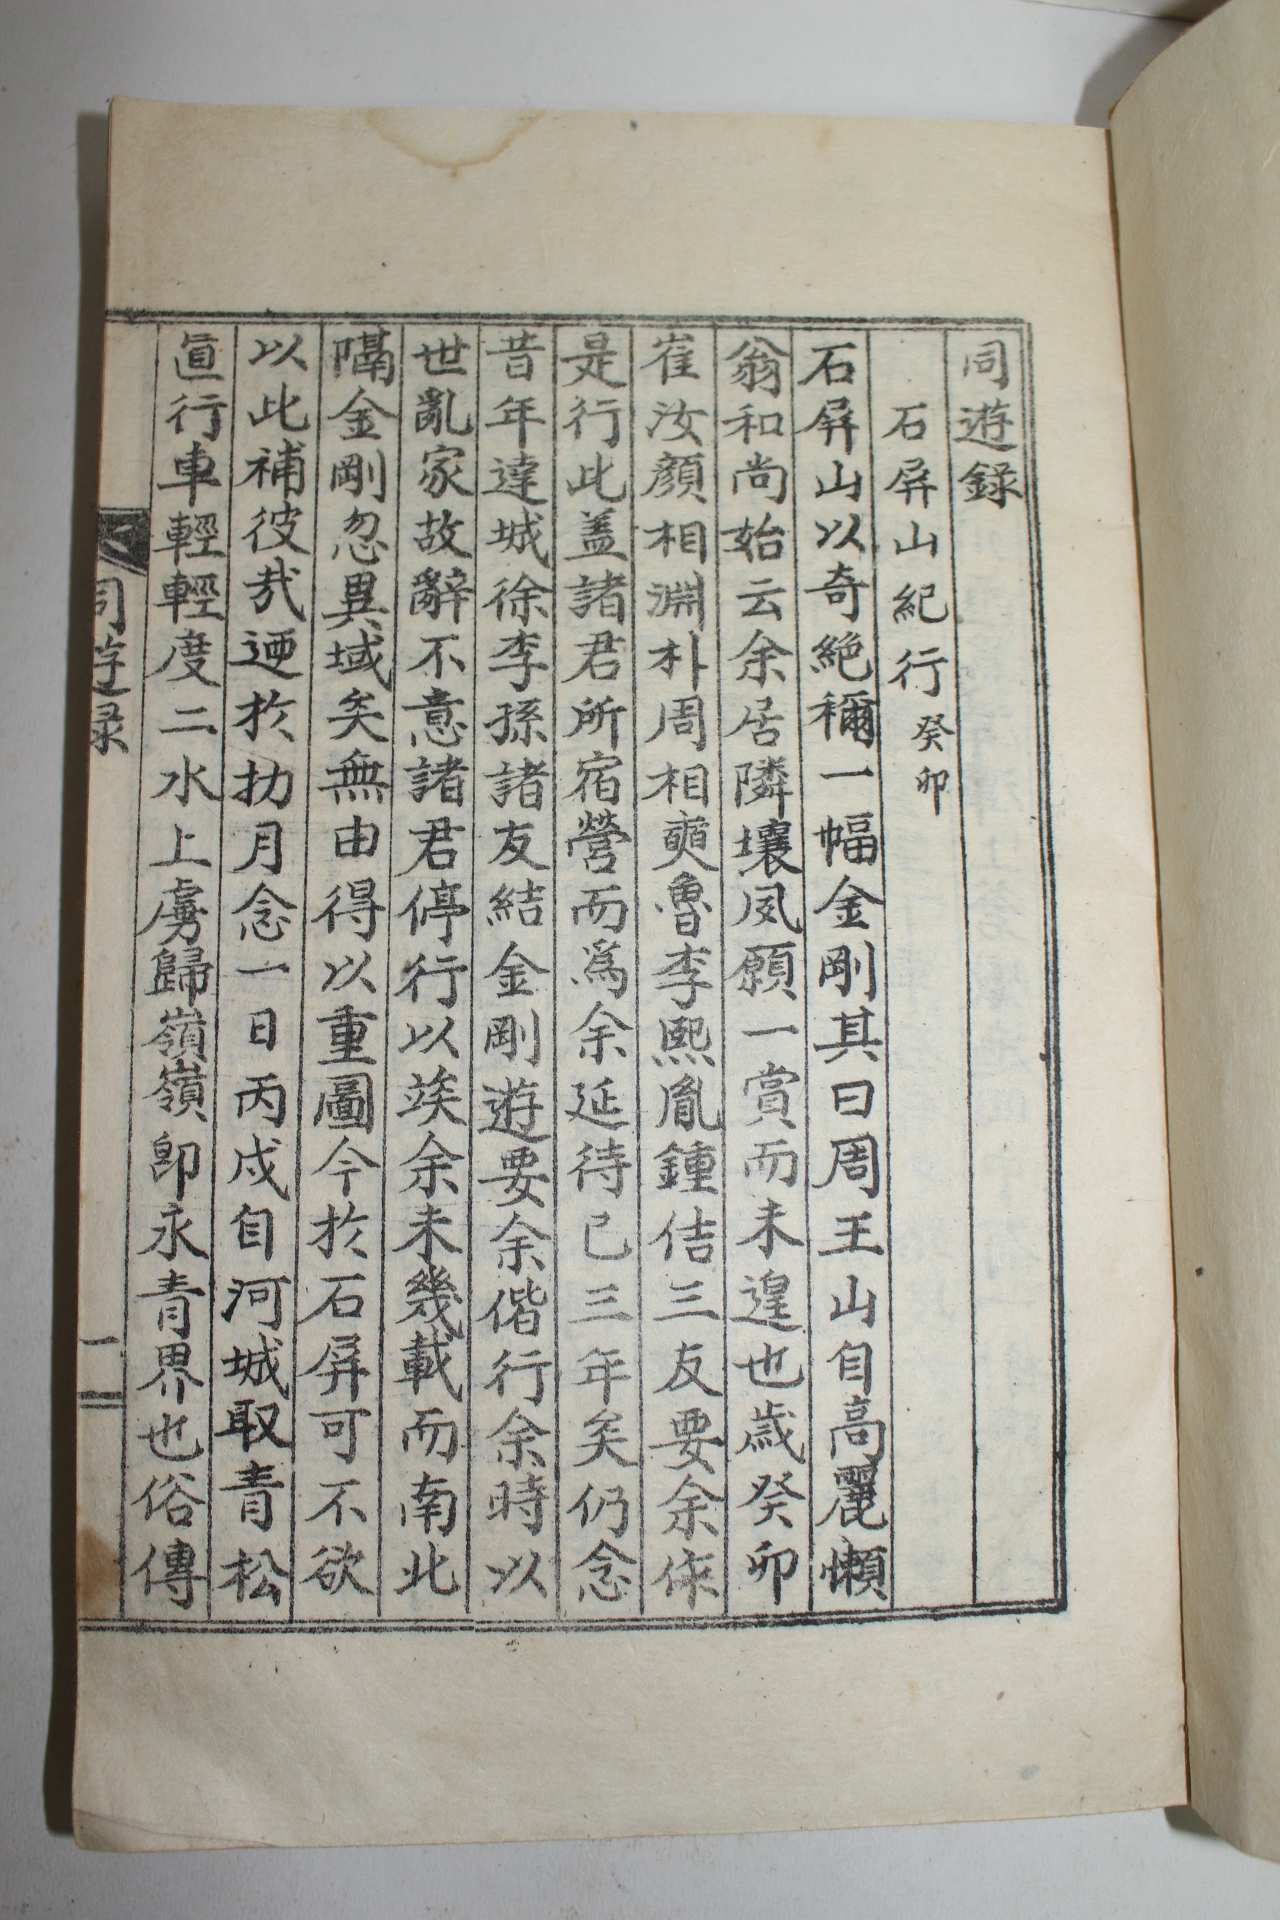 同遊錄
石屏山紀行 癸卯
石屏山以奇絶稱一幅金剛其曰周王山自高麗懶
翁和尚始云余居隣壤夙願一賞而未遑也歲癸卯
崔汝顔相淵朴周相奭魯李熙胤鍾佶三友要余作
是行此盖諸君所宿營而爲余延待已三年矣仍念
昔年達城徐李孫諸友結金剛遊要余偕行余時以
世亂家故辭不意諸君停行以竢余未幾載而南北
隔金剛忽異域矣無由得以重圖今於石屏可不欲
以此補彼㢤迺於扐月念一日丙戌自河城取青松
直行車輕輕度二水上虏歸嶺嶺卽永青界也俗傳
同遊录
一